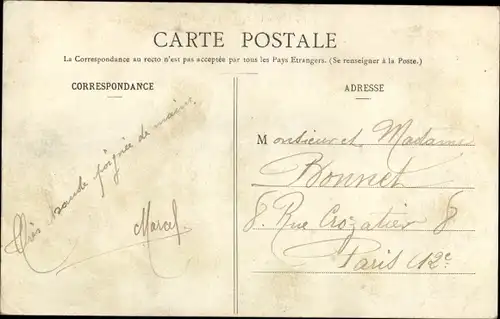 CARTE POSTALE
La Correspondance au recto n'est pas acceptée par tous les Pays Etrangers. (Se renseigner à la Poste.)
CORRESPONDANCE
Très grande poignée de main.
Marcel.
ADRESSE
Monsieur et Madame
Bonnet
8. Rue Crozatier 8
Paris 12e